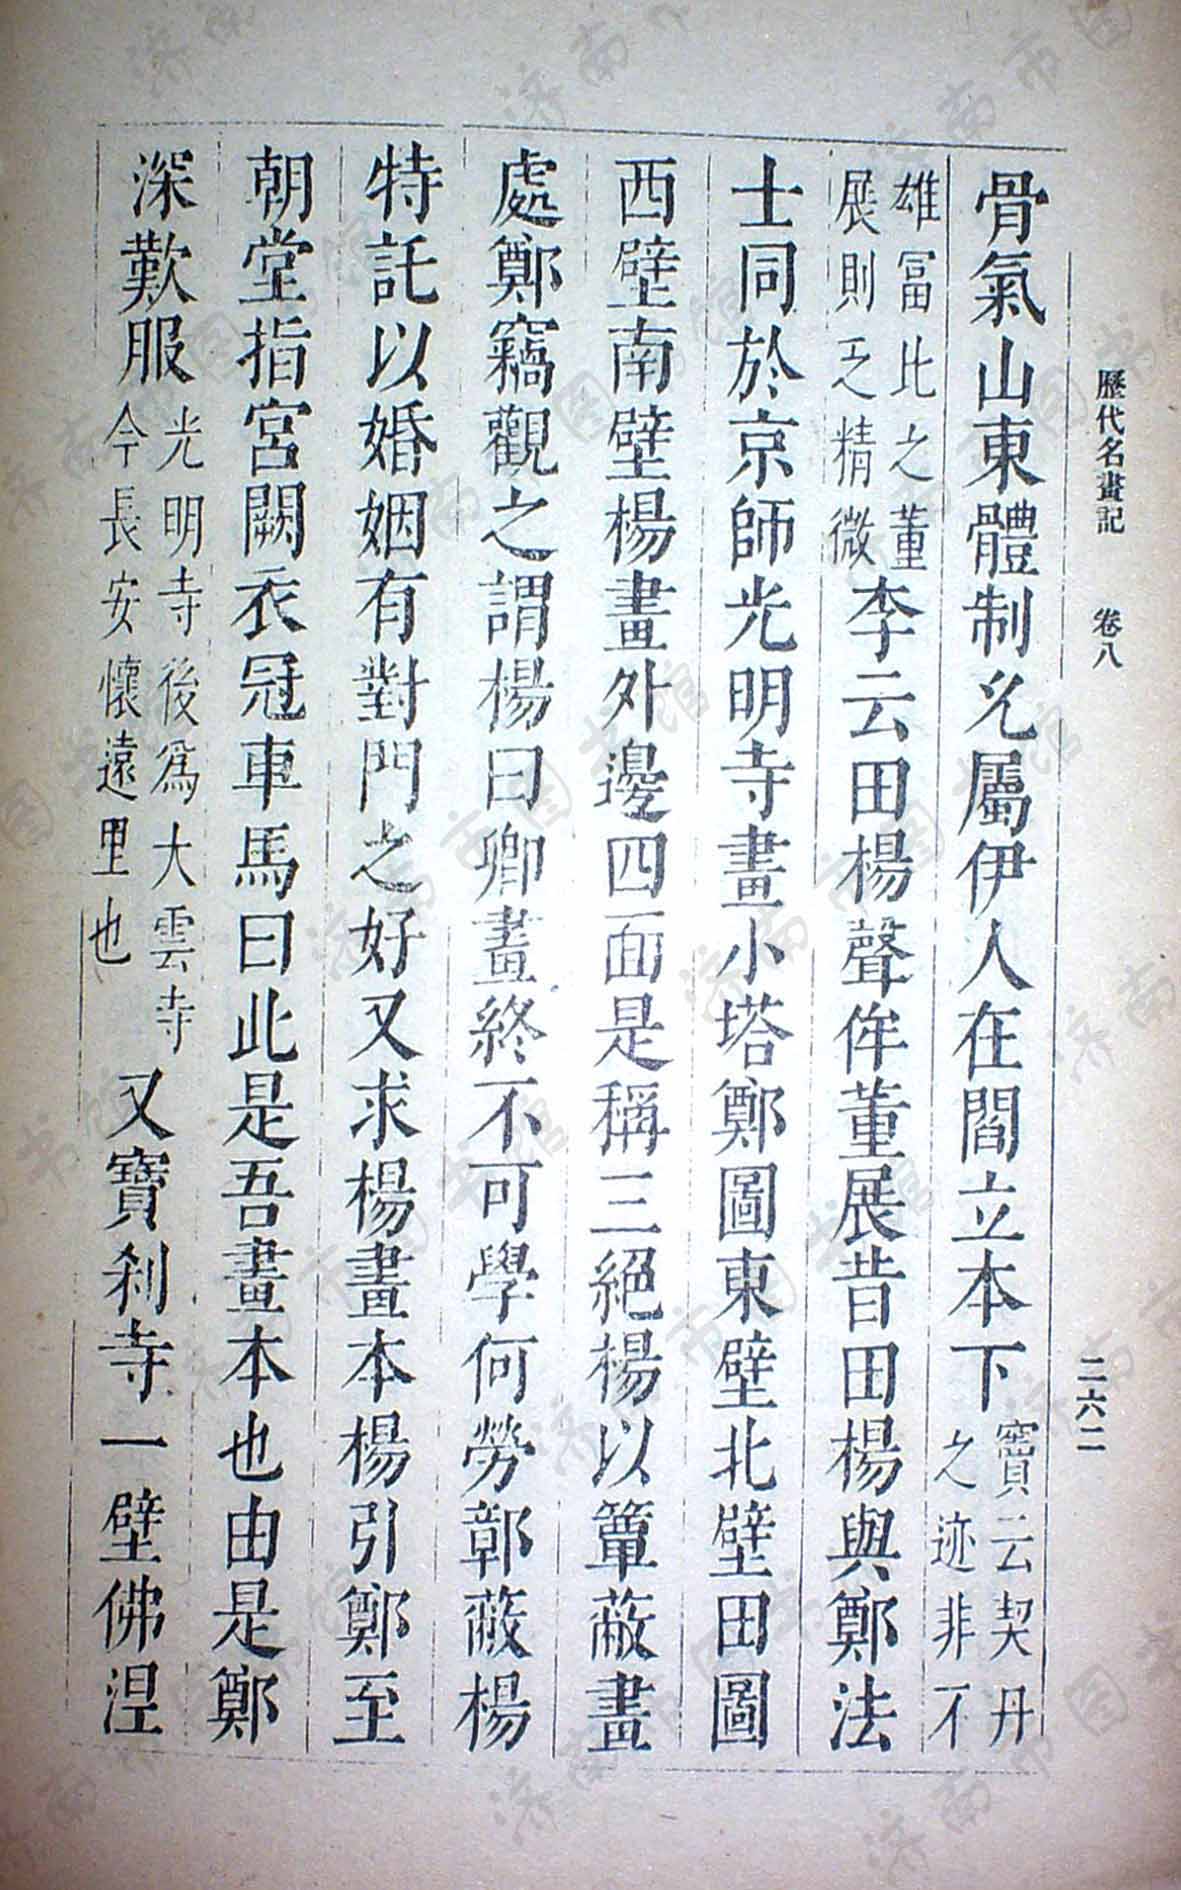 歷代名畫記 卷八 二六二
骨氣山東體制允屬伊人在閻立本下竇云契丹之迹非不
雄富比之董展則乏精微李云田楊聲侔董展昔田楊與鄭法
士同於京師光明寺畫小塔鄭圖東壁北壁田圖
西壁南壁楊畫外邊四面是稱三絕楊以簟蔽畫
處鄭竊觀之謂楊曰卿畫終不可學何勞鄣蔽楊
特託以婚姻有對門之好又求楊畫本楊引鄭至
朝堂指宮闕衣冠車馬曰此是吾畫本也由是鄭
深歎服光明寺後爲大雲寺今長安懷遠里也又寶刹寺一壁佛涅
济南市图书馆